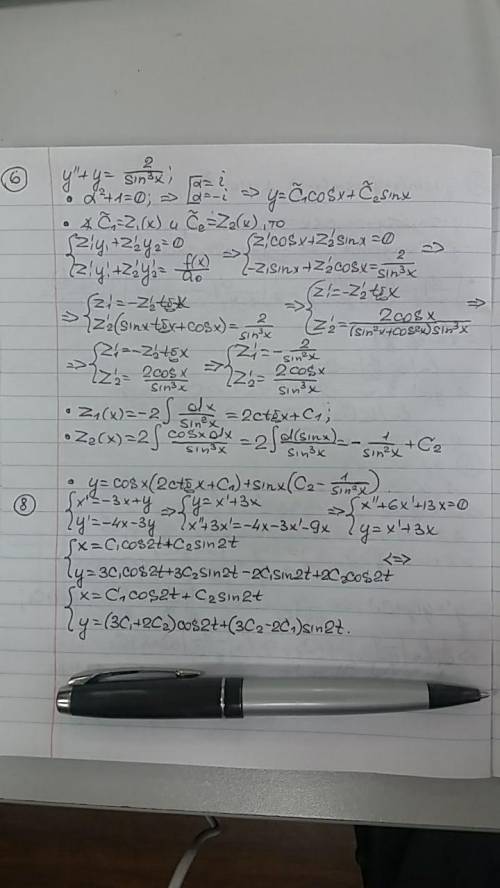 6
y''+y = 2/sin³x;
• α²+1=0; => [α=i α=-i => y=C̃₁cosx+C̃₂sinx
• ∡ C̃₁=Z₁(x) и C̃₂=Z₂(x), то
{Z₁'y₁+Z₂'y₂=0 Z₁'y₁'+Z₂'y₂'=f(x)/a₀ => {Z₁'cosx+Z₂'sinx=0 -Z₁'sinx+Z₂'cosx=2/sin³x =>
=> {Z₁'=-Z₂'tgx Z₂'(sinx tgx+cosx)=2/sin³x => {Z₁'=-Z₂'tgx Z₂'=2cosx/(sin²x+cos²x)sin³x =>
=> {Z₁'=-Z₂'tgx Z₂'=2cosx/sin³x => {Z₁'=-2/sin²x Z₂'=2cosx/sin³x
• Z₁(x)=-2∫dx/sin²x=2ctgx+C₁;
• Z₂(x)=2∫cosx dx/sin³x=2∫d(sinx)/sin³x=-1/sin²x+C₂
• y=cosx(2ctgx+C₁)+sinx(C₂-1/sin²x)
8
{x'=-3x+y y'=-4x-3y => {y=x'+3x x''+3x'=-4x-3x'-9x => {x''+6x'+13x=0 y=x'+3x
{x=C₁cos2t+C₂sin2t y=3C₁cos2t+3C₂sin2t-2C₁sin2t+2C₂cos2t <=>
{x=C₁cos2t+C₂sin2t y=(3C₁+2C₂)cos2t+(3C₂-2C₁)sin2t.